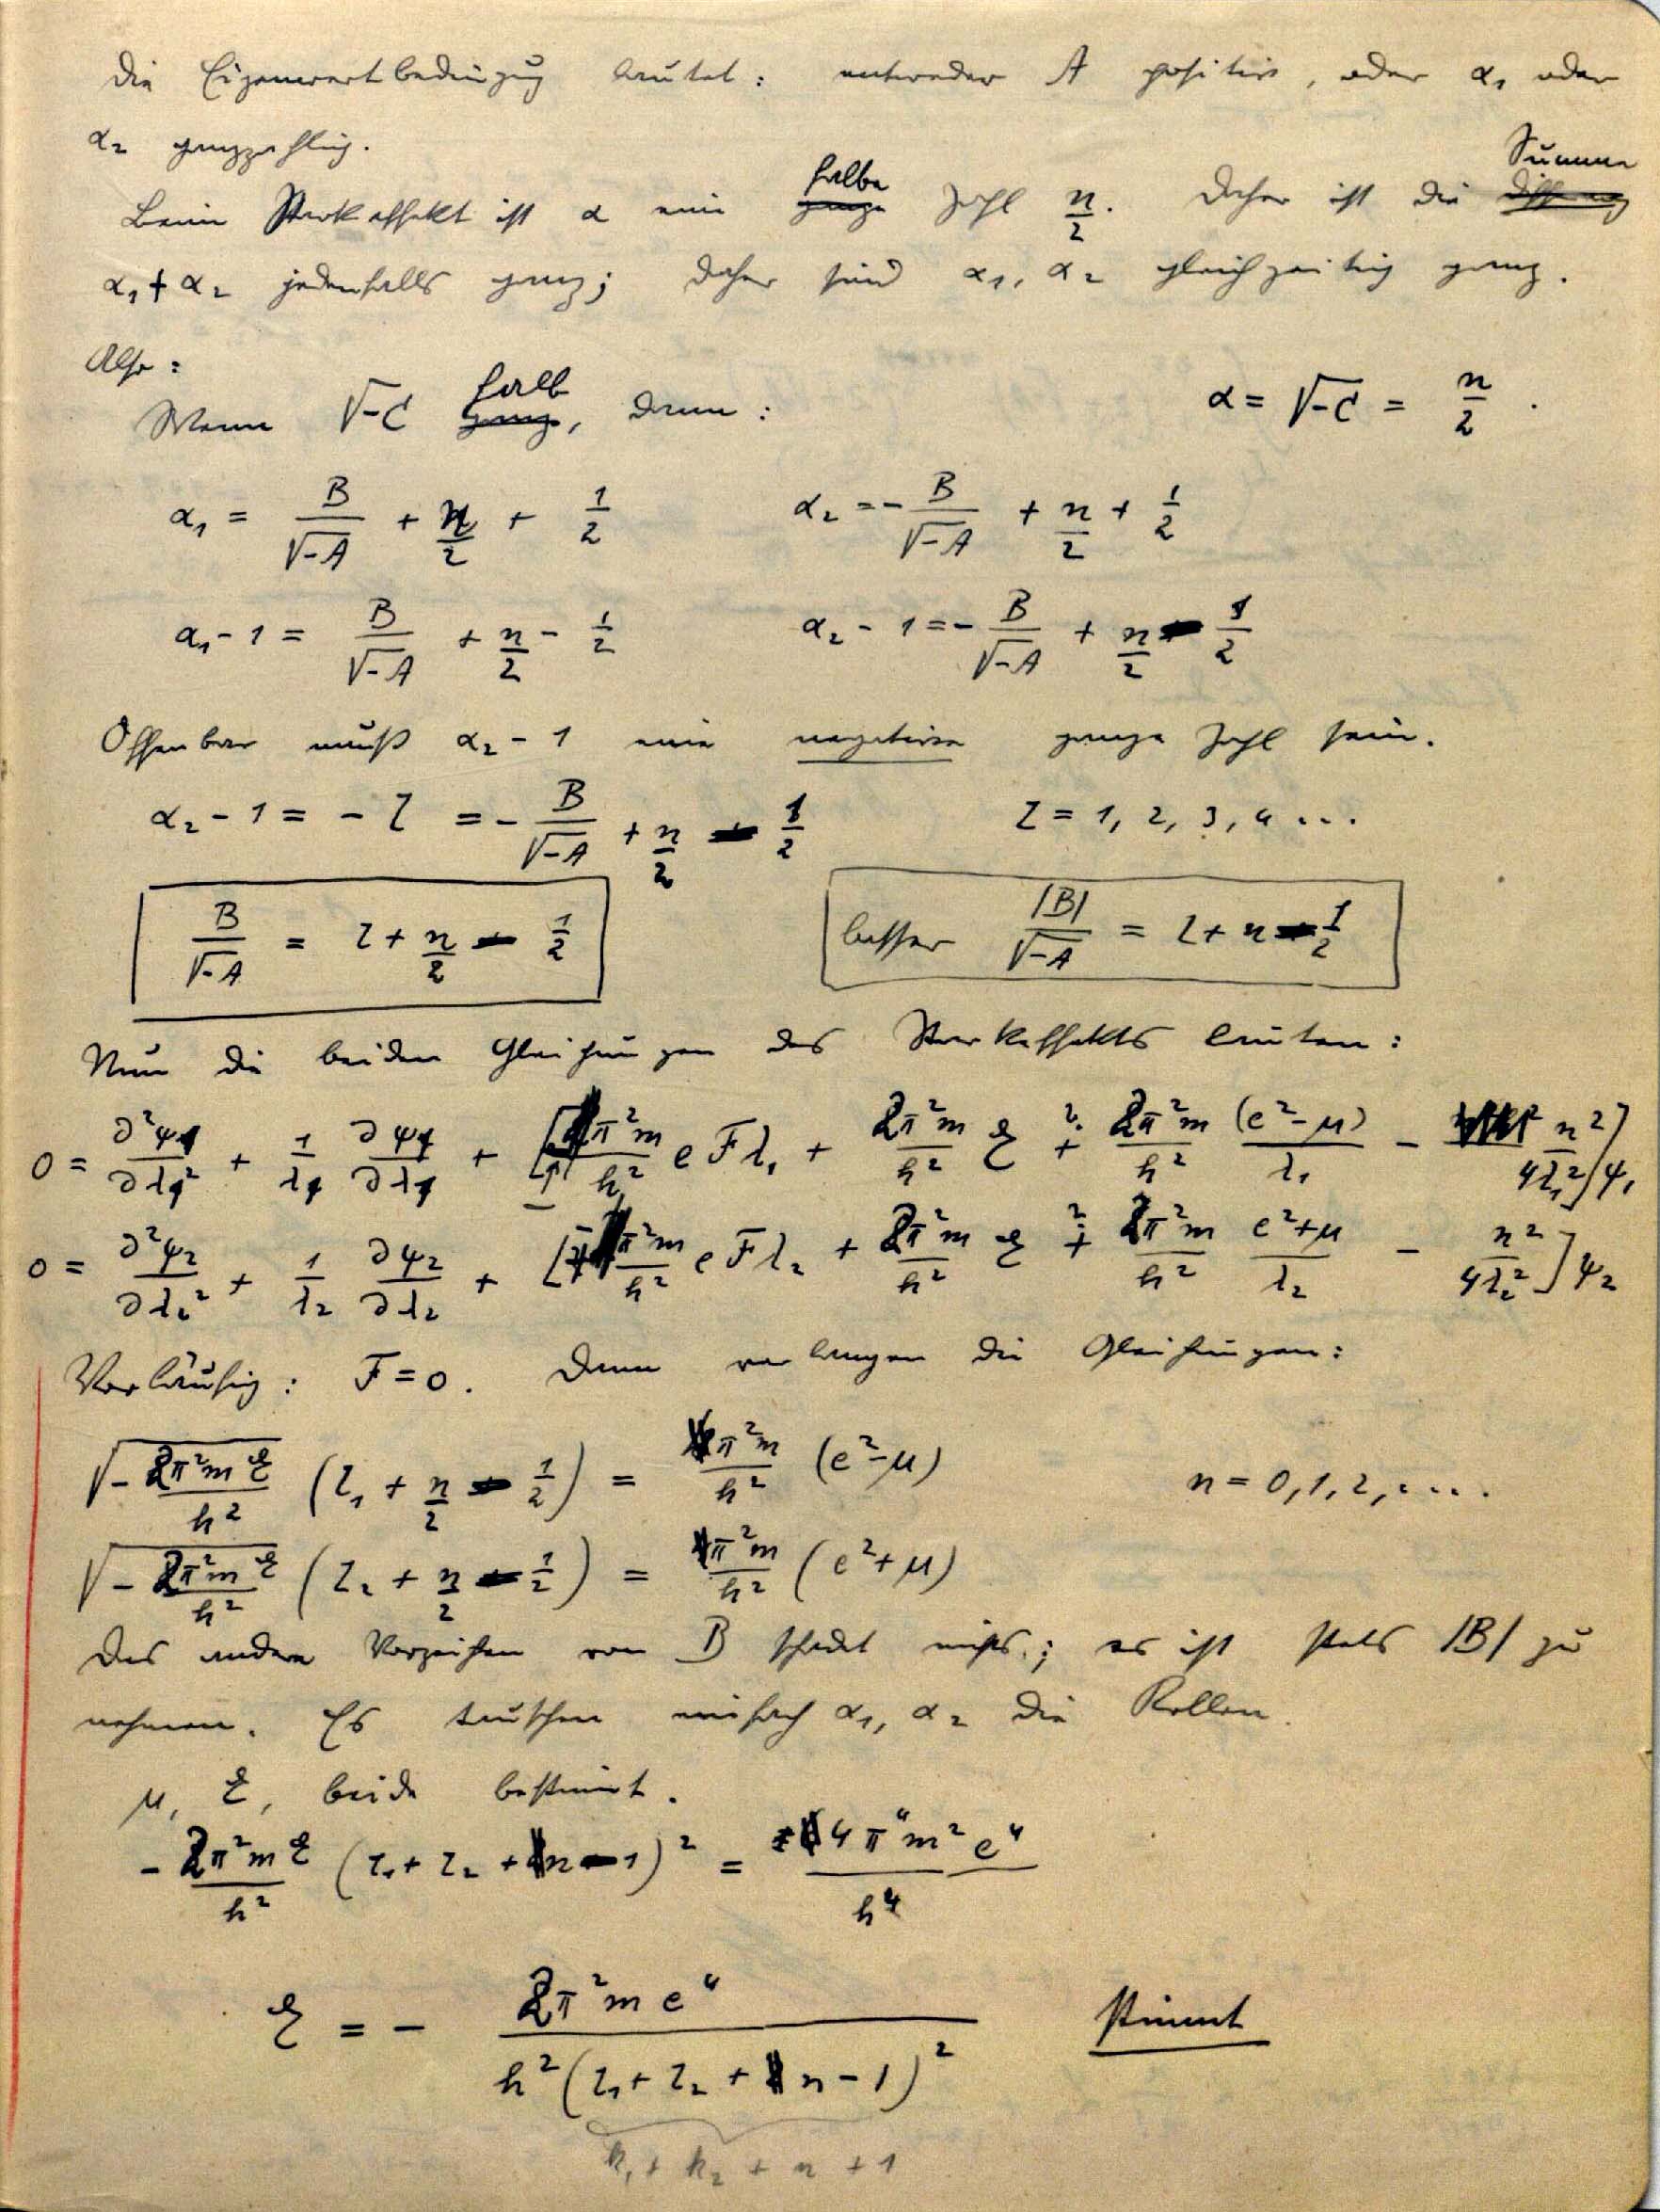 Die Eigenwertbedingung lautet: entweder A positiv, oder α₁ oder
α₂ ganzzahlig.
Beim Starkeffekt ist α eine ~~ganze~~ halbe Zahl n/2. Daher ist die ~~Differenz~~ Summe
α₁ + α₂ jedenfalls ganz; daher sind α₁, α₂ gleichzeitig ganz.
Also:
Wenn √-C ~~ganz~~ halb, dann: α = √-C = n/2.
α₁ = B/√-A + n/2 + 1/2 α₂ = - B/√-A + n/2 + 1/2
α₁ - 1 = B/√-A + n/2 - 1/2 α₂ - 1 = - B/√-A + n/2 - 1/2
Offenbar muß α₂ - 1 eine negative ganze Zahl sein.
α₂ - 1 = - l = - B/√-A + n/2 - 1/2 l = 1, 2, 3, 4 ...
B/√-A = l + n/2 - 1/2 besser |B|/√-A = l + n - 1/2
Nun die beiden Gleichungen des Starkeffekts lauten:
0 = ∂²ψ₁/∂λ₁² + 1/λ₁ ∂ψ₁/∂λ₁ + [ π²m/h² e F λ₁ + 2π²m/h² E + 2π²m/h² (e²-μ)/λ₁ - n²/4λ₁² ] ψ₁
0 = ∂²ψ₂/∂λ₂² + 1/λ₂ ∂ψ₂/∂λ₂ + [ π²m/h² e F λ₂ + 2π²m/h² E + 2π²m/h² e²+μ/λ₂ - n²/4λ₂² ] ψ₂
Vorläufig: F = 0. Dann verlangen die Gleichungen:
√- 2π²mE/h² (l₁ + n/2 - 1/2) = π²m/h² (e²-μ) n = 0, 1, 2, ....
√- 2π²mE/h² (l₂ + n/2 - 1/2) = π²m/h² (e²+μ)
Das andere Vorzeichen von B schadet nichts; es ist stets |B| zu
nehmen. Es tauschen einfach α₁, α₂ die Rollen.
μ, E, beide bestimmt.
- 2π²mE/h² (l₁ + l₂ + n - 1)² = 4π⁴m²e⁴/h⁴
E = - 2π²me⁴/h²(l₁ + l₂ + n - 1)² stimmt
k₁ + k₂ + n + 1